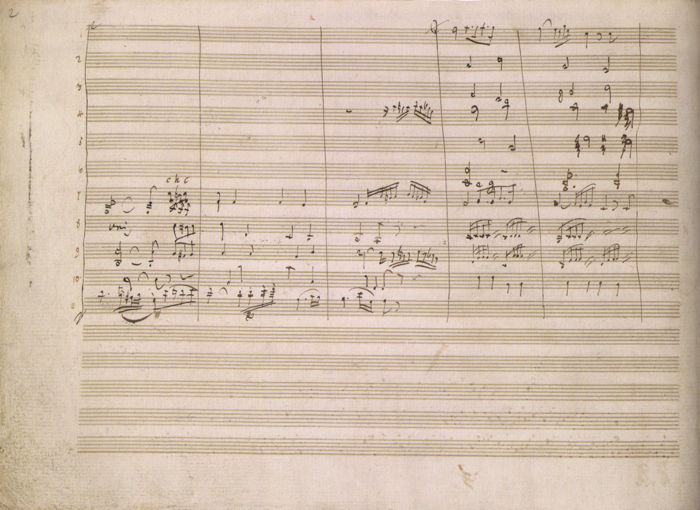 2
2
3
4
5
6
c h c
7
unis
8
9
10